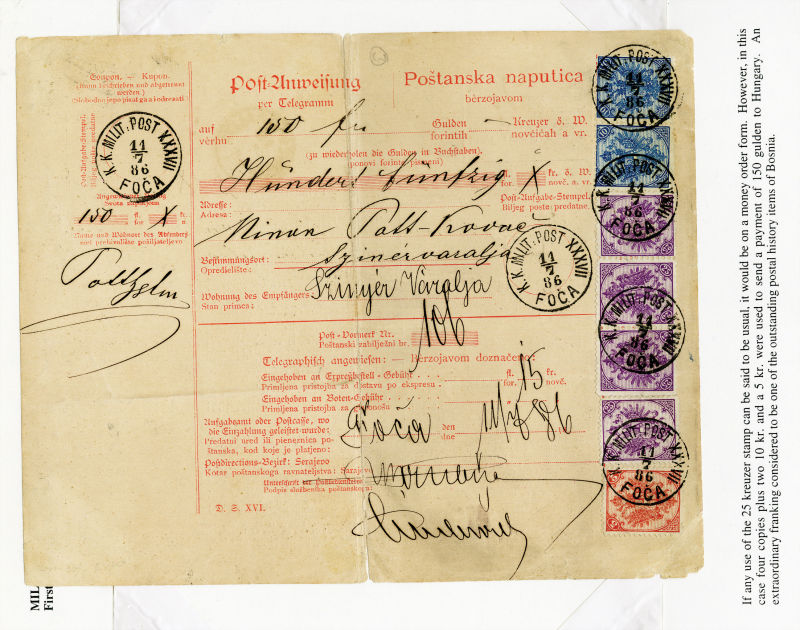 Coupon. — Kupon.
K. K. MILIT. POST XXXVII
11
7
86
FOČA
150 fl. X kr.
for. n
Name und Wohnort des Absenders
Post-Anweisung
per Telegramm
Poštanska naputica
bérzojavom
auf 150 Gulden Kreuzer ö. W.
na forintih novčićah a vr.
(zu wiederholen die Gulden in Buchstaben).
(ponovi forinte pismeni)
Hundert fünfzig fl. X kr. ö. W.
for. novč. a. vr.
Post-Aufgabe-Stempel.
Biljeg poste predatne.
Adresse:
Adresa:
Bestimmungsort: Szinérváralja
Opredielište:
Szinyér Váralja
Wohnung des Empfängers
Stan primca:
K. K. MILIT. POST XXXVII
11
7
86
FOČA
Post-Vormerk Nr. 106
Poštanski zabilježni br.
Telegraphisch angewiesen: — Bérzojavom doznačeno:
Eingehoben an Expreßbestell-Gebühr fl. 15 kr.
Primljena pristojba za dostavu po ekspresu for. novč.
Eingehoben an Boten-Gebühr
Primljena pristojba za
Aufgabeamt oder Postcasse, wo
die Einzahlung geleistet wurde: Foča den 11/7 86
Predatni ured ili pieneznica poštanska, kod koje je plaćeno: dne
Postdirections-Bezirk: Sarajevo
Kotar poštanskoga ravnateljstva: Sarajevo
Unterschrift des Postbediensteten
Podpis službenika poštanskoga:
D. S. XVI.
K. K. MILIT. POST XXXVII
11
7
86
FOČA
K. K. MILIT. POST XXXVII
11
7
86
FOČA
K. K. MILIT. POST XXXVII
11
7
86
FOČA
K. K. MILIT. POST XXXVII
11
7
86
FOČA
If any use of the 25 kreuzer stamp can be said to be usual, it would be on a money order form. However, in this
case four copies plus two 10 kr. and a 5 kr. were used to send a payment of 150 gulden to Hungary. An
extraordinary franking considered to be one of the outstanding postal history items of Bosnia.
MIL
First